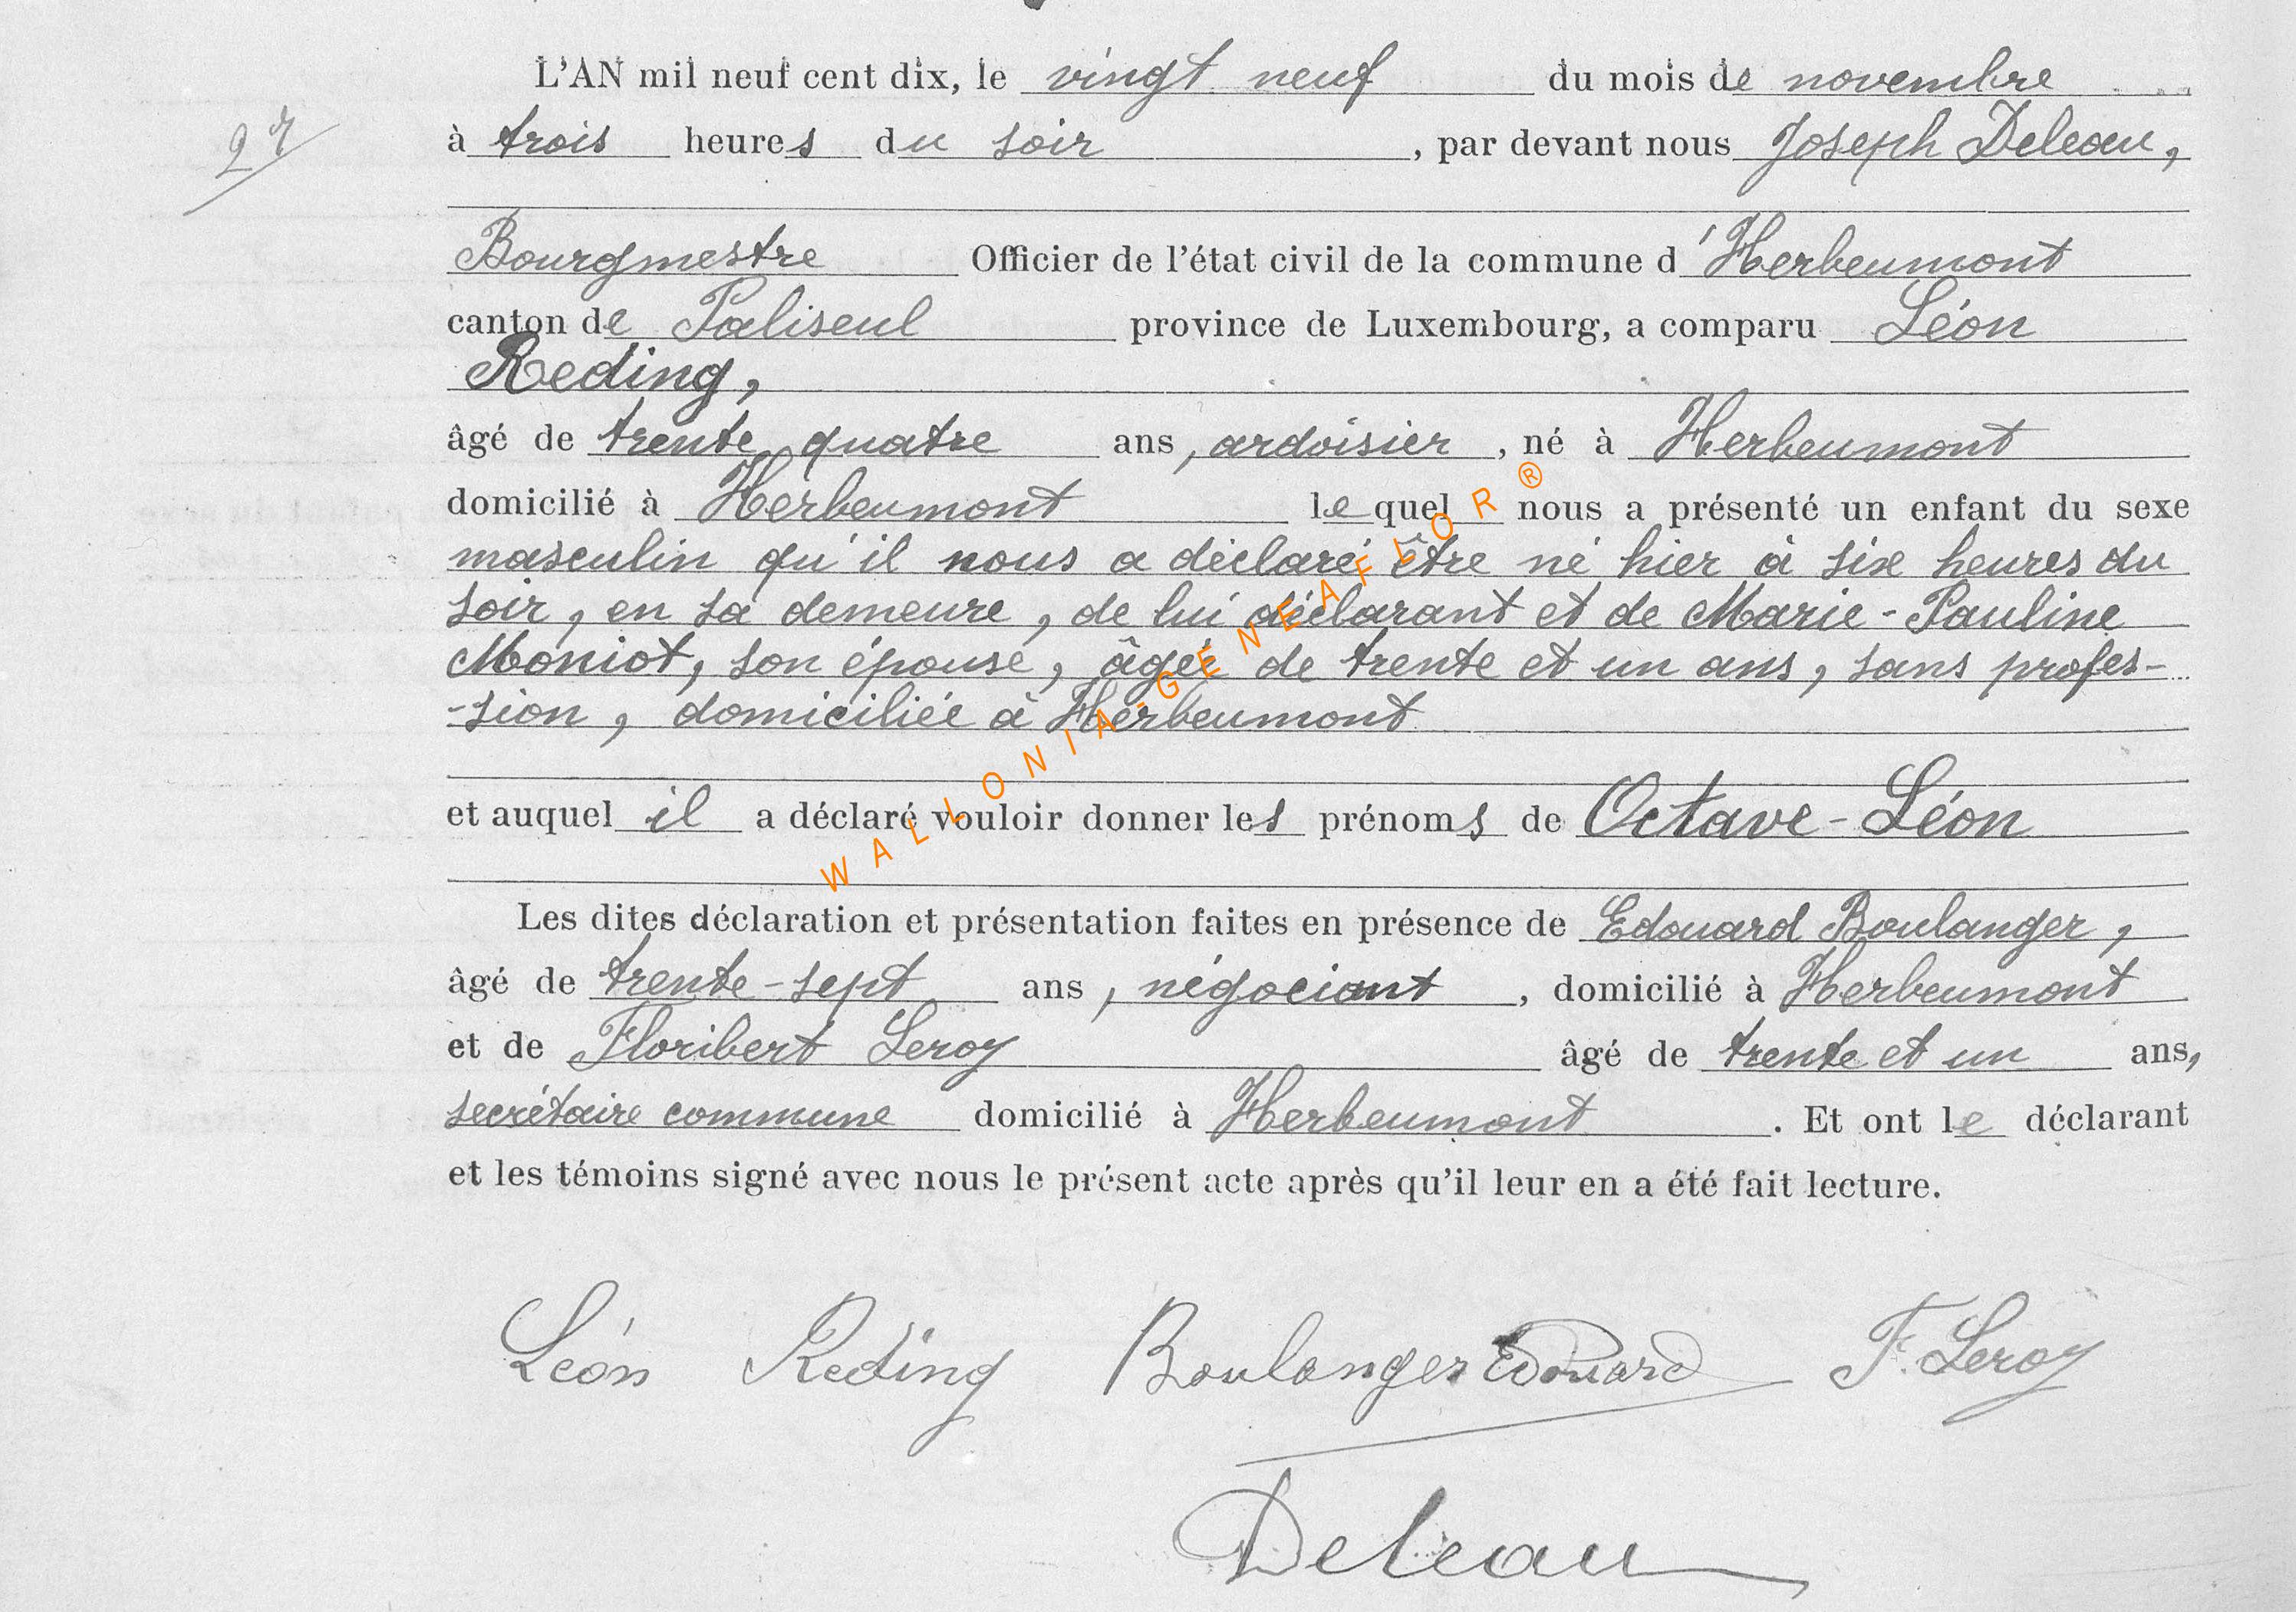 L'AN mil neuf cent dix, le vingt neuf du mois de novembre
27
à trois heures du soir, par devant nous Joseph Deleau,
Bourgmestre Officier de l'état civil de la commune d'Herbeumont
canton de Paliseul province de Luxembourg, a comparu Léon
Reding,
âgé de trente quatre ans, ardoisier, né à Herbeumont
domicilié à Herbeumont lequel nous a présenté un enfant du sexe
masculin qu'il nous a déclaré être né hier à six heures du
soir, en sa demeure, de lui déclarant et de Marie-Pauline
Moniot, son épouse, âgée de trente et un ans, sans profes-
-sion, domiciliée à Herbeumont
et auquel il a déclaré vouloir donner les prénoms de Octave-Léon
Les dites déclaration et présentation faites en présence de Edouard Boulanger,
âgé de trente-sept ans, négociant, domicilié à Herbeumont
et de Floribert Leroy âgé de trente et un ans,
secrétaire commune domicilié à Herbeumont. Et ont le déclarant
et les témoins signé avec nous le présent acte après qu'il leur en a été fait lecture.
Léon Reding Boulanger Edouard F. Leroy
Deleau
WALLONIA-GENEAFLOR®